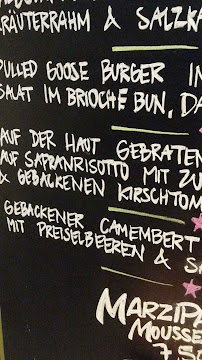 KRÄUTERRAHM & SALZKA
PULLED GOOSE BURGER IN
SALAT IM BRIOCHE BUN, DA
AUF DER HAUT GEBRATEN
AUF SAFRANRISOTTO MIT ZU
& GEBACKENEN KIRSCHTOM
GEBACKENER CAMEMBERT
MIT PREISELBEEREN & SA
MARZIPA
MOUSSE